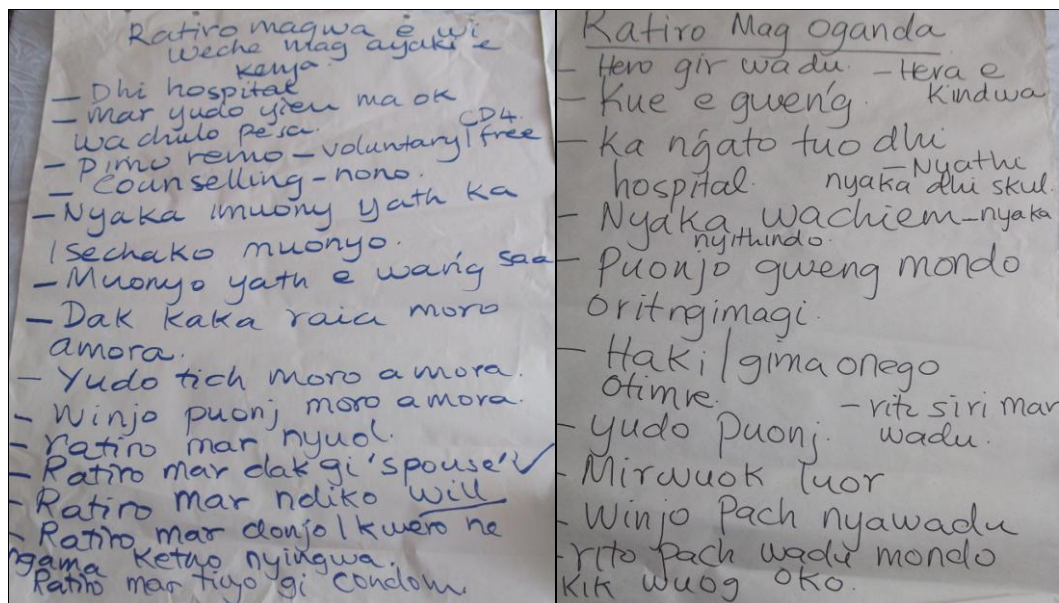 Ratiro magwa e wi
weche mag ayaki e
kenya.
- Dhi hospital
- mar yudo yieu ma ok
wachulo pesa. CD4.
- Pimo remo - voluntary / free
- Counselling - nono.
- Nyaka imuony yath ka
isechako muonyo.
- Muonyo yath e wang' saa
- Dak kaka raia moro
amora.
- Yudo tich moro amora.
- Winjo puonj moro amora.
- ratiro mar nyuol.
- Ratiro mar dak gi 'spouse' ✓
- Ratiro mar ndiko will
- Ratiro mar donjo / kwero ne
ngama ketho nyingwa.
Ratiro mar tiyo gi condom.
Ratiro Mag Oganda
- Hero gir wadu. - Hera e
kindwa
- Kue e gweng'.
- Ka ng'ato tuo dhi
hospital. - Nyathi
nyaka dhi skul.
- Nyaka wachiem - nyaka
nyithindo.
- Puonjo gweng mondo
oritngimagi.
- Haki / gima onego
otimre.
- rito siri mar
wadu.
- yudo puonj.
- Mirwuok luor
- Winjo Pach nyawadu
- rito pach wadu mondo
kik wuog oko.